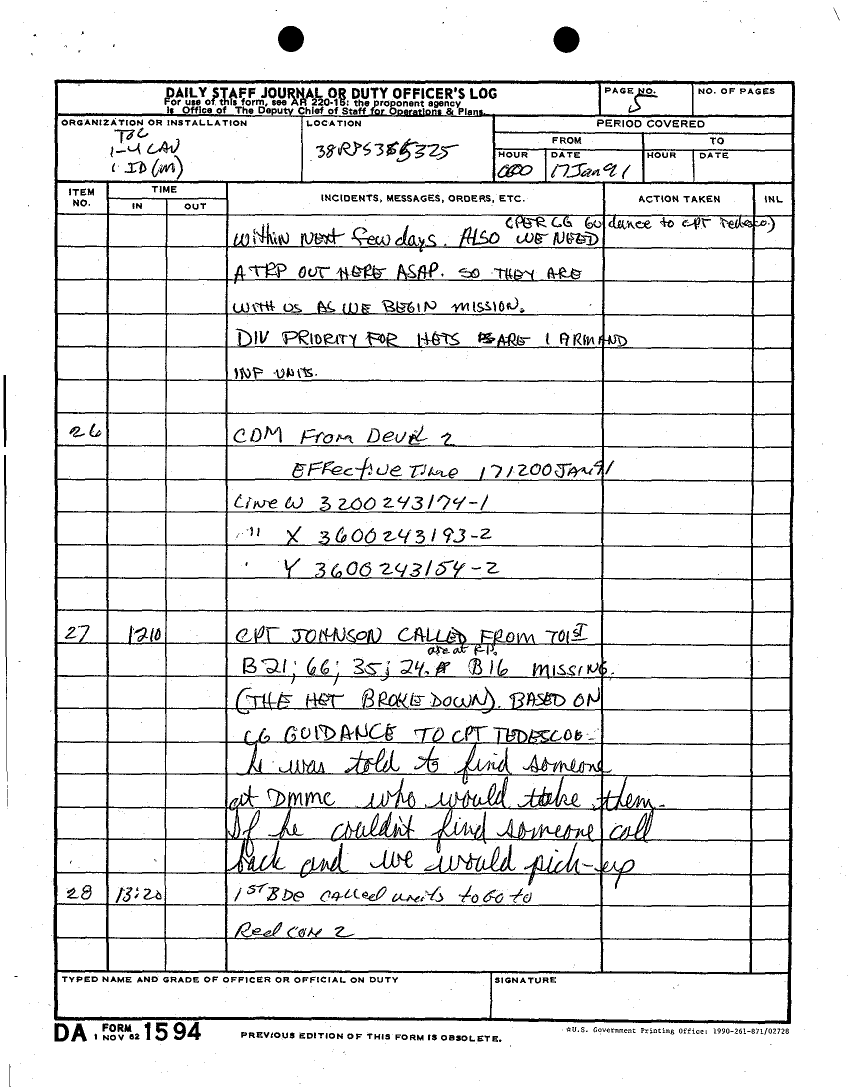 DAILY STAFF JOURNAL OR DUTY OFFICER'S LOG
For use of this form, see AR 220-15: the proponent agency
is Office of The Deputy Chief of Staff for Operations & Plans.
PAGE NO.
5
NO. OF PAGES
ORGANIZATION OR INSTALLATION
TOC
1-4 CAV
1 ID (M)
LOCATION
38RPS365325
PERIOD COVERED
FROM
TO
HOUR
0000
DATE
17 Jan 91
HOUR
DATE
ITEM NO.
TIME
IN
OUT
INCIDENTS, MESSAGES, ORDERS, ETC.
ACTION TAKEN
INL
(PER CG Guidance to CPT Tedesco)
within NEXT few days. ALSO WE NEED
A TRP OUT HERE ASAP. SO THEY ARE
WITH US AS WE BEGIN MISSION.
DIV PRIORITY FOR HETS ARE 1 ARM AND
INF UNITS.
26
CDM From Devil 2
Effective Time 171200 JAN 91
Line W 3200243174-1
" X 3600243193-2
' Y 3600243154-2
27 1210 CPT JOHNSON CALLED FROM 701ST
are at RP.
B21; 66; 35; 24. B16 MISSING.
(THE HET BROKE DOWN). BASED ON
CG GUIDANCE TO CPT TEDESCO
he was told to find someone
at DMMC who would take them.
If he couldn't find someone call
back and we would pick-up
28 13:20 1ST BDE called units to GO to
RedCon 2
TYPED NAME AND GRADE OF OFFICER OR OFFICIAL ON DUTY
SIGNATURE
DA FORM 1594
1 NOV 62
PREVIOUS EDITION OF THIS FORM IS OBSOLETE.
☆U.S. Government Printing Office: 1990-261-871/02728